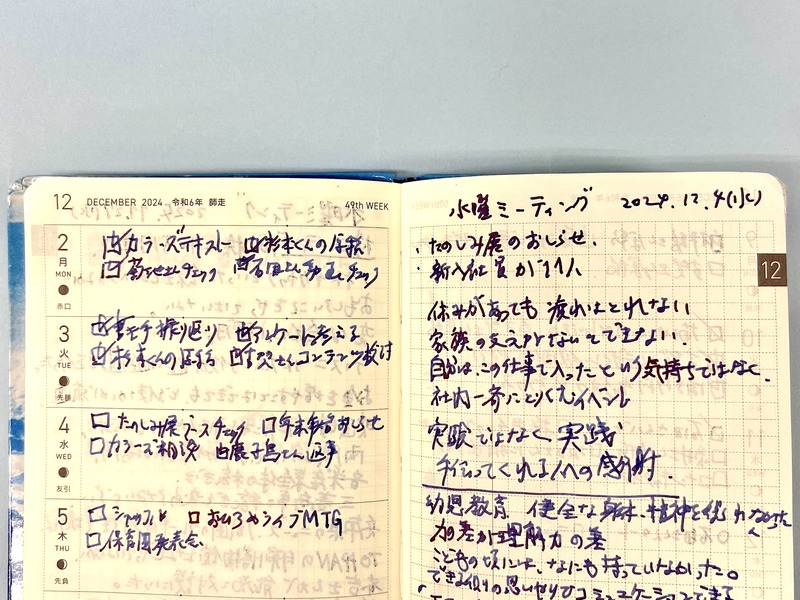 12 DECEMBER 2024 令和6年 師走 49th WEEK
2 月 MON 赤口
カラーズテキスト 杉本くんの原稿
チェック 石田さん動画チェック
3 火 TUE 先勝
振り返り アンケート考える
杉本くんの原稿 さんコンテンツ検討
4 水 WED 友引
たのしみ展ブースチェック 年末年始おしらせ
カラーズ相談 鹿子島さん返事
5 木 THU 先負
シャッフル おひろめライブMTG
保育園発表会
水曜ミーティング 2024.12.4(水)
・たのしみ展のおしらせ.
・新入社員が11人
12
休みがあっても疲れはとれない
家族の支えがないとできない.
自分は、この仕事で入ったという気持ちではなく.
社内一斉にとりくむイベント
実験ではなく実践
手伝ってくれる人への感謝.
幼児教育 健全な身体・精神を
の差が理解力の差
こどもの頃には、なにも持っていなかった。
できる限りの思いやりでコミュニケーションできる